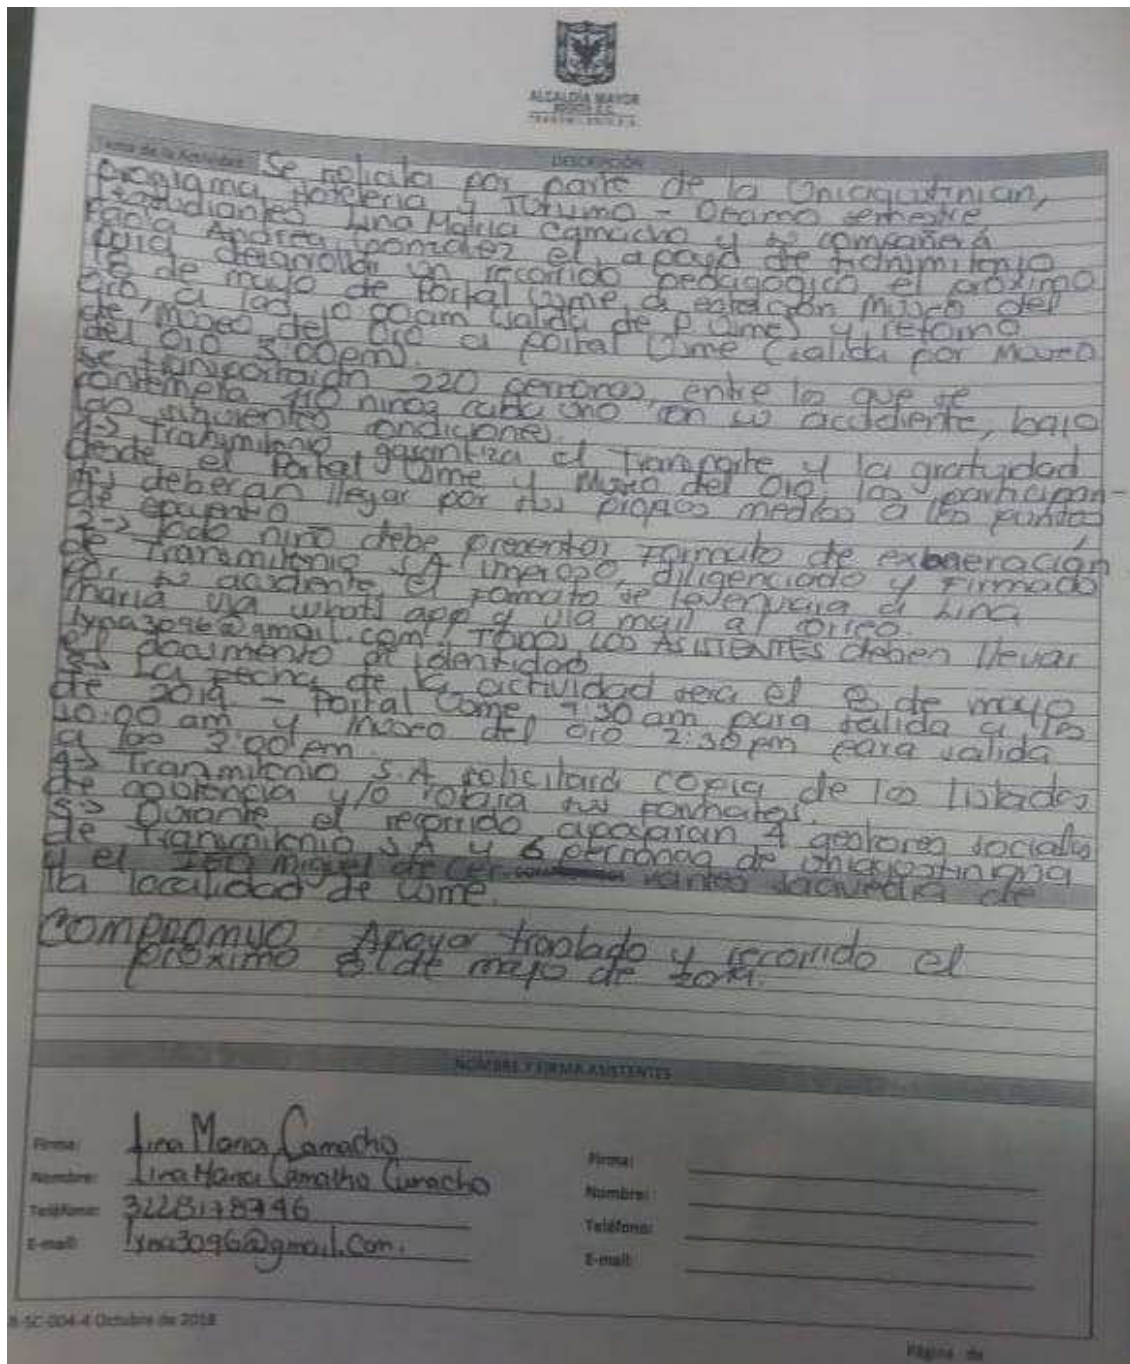 ALCALDÍA MAYOR
BOGOTÁ D.C.
TRANSMILENIO S.A.
Tema de la Actividad:
DESCRIPCIÓN
Se solicita por parte de la Uniagustinian,
programa Hoteleria y Turismo - Octavo semestre
estudiantes Lina Maria Camacho y su compañera
Paola Andrea Gonzalez el apoyo de transmilenio
para desarrollar un recorrido pedagogico el próximo
8 de mayo de Portal Usme a estación Museo del
Oro, a las 10:00am (salida de P. Usme) y retorno
de Museo del Oro a portal Usme (salida por Museo
del Oro 3:00pm).
Se transportarán 220 personas, entre los que se
110 niños cada uno con su accidente, bajo
las siguientes condiciones.
1-> Transmilenio garantiza el transporte y la gratuidad
desde el Portal Usme y Museo del Oro, los participan-
tes deberan llegar por sus propios medios a los puntos
de encuentro
2-> Todo niño debe presentar Formato de exoneración
de Transmilenio S.A impreso, diligenciado y Firmado
por su acudiente, el Formato se le a Lina
maria via whats app y via mail al correo.
lyna3096@gmail.com, TODOS LOS ASISTENTES deben llevar
el documento de identidad.
3-> La Fecha de la actividad sera el 8 de mayo
de 2019 - Portal Usme 9:30 am para salida a las
10:00 am y Museo del Oro 2:30 pm para salida
a las 3:00 pm.
4-> Transmilenio S.A solicitará copia de los listados
de asistencia y/o sus Formatos.
5-> Durante el recorrido, apoyaran 4 gestores sociales
de Transmilenio S.A y 6 personas de Uniagustiniana
y el IED Miguel de Cer vantes Saavedra de
la localidad de Usme.
COMPROMISO: Apoyar traslado y recorrido el
próximo 8 de mayo de 2019.
NOMBRE Y FIRMA ASISTENTES
Firma: Lina Maria Camacho
Nombre: Lina Maria Camacho Camacho
Teléfono: 3228178746
E-mail: lyna3096@gmail.com.
Firma:
Nombre:
Teléfono:
E-mail:
R-SC-004-4 Octubre de 2018
Página de